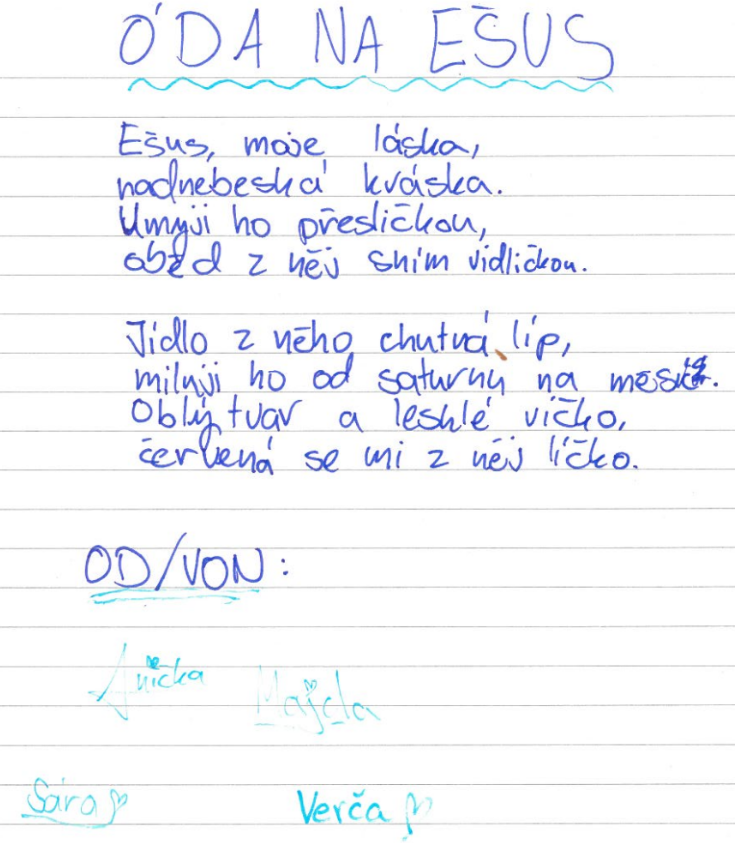 ÓDA NA EŠUS
Ešus, moje láska,
nadnebeská kváska.
Umyji ho přesličkou,
oběd z něj sním vidličkou.
Jídlo z něho chutná líp,
miluji ho od saturnu na
Oblý tvar a lesklé víčko,
červená se mi z něj líčko.
OD/VON:
Anička Majda
Sára Verča